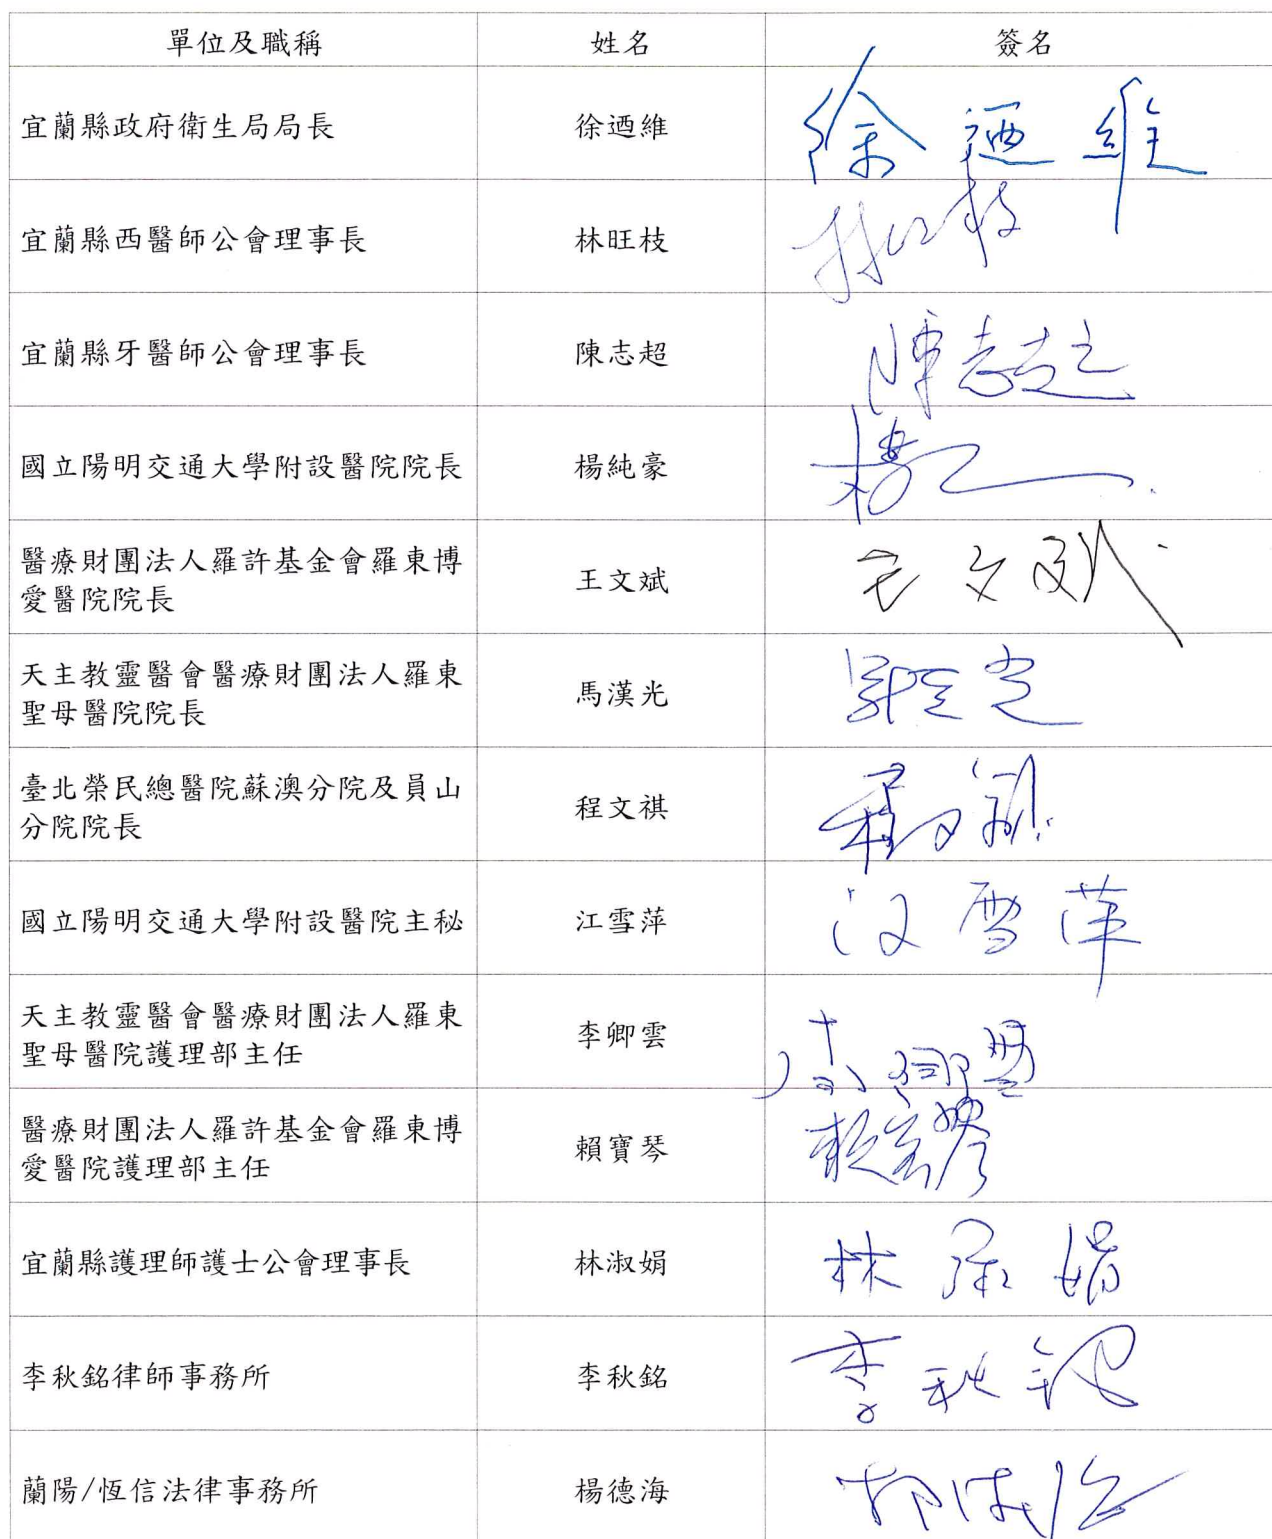 單位及職稱 姓名 簽名
宜蘭縣政府衛生局局長 徐迺維 徐迺維
宜蘭縣西醫師公會理事長 林旺枝 林旺枝
宜蘭縣牙醫師公會理事長 陳志超 陳志超
國立陽明交通大學附設醫院院長 楊純豪 楊
醫療財團法人羅許基金會羅東博
愛醫院院長 王文斌 王文斌
天主教靈醫會醫療財團法人羅東
聖母醫院院長 馬漢光 馬漢光
臺北榮民總醫院蘇澳分院及員山
分院院長 程文祺 程文祺
國立陽明交通大學附設醫院主秘 江雪萍 江雪萍
天主教靈醫會醫療財團法人羅東
聖母醫院護理部主任 李卿雲
醫療財團法人羅許基金會羅東博
愛醫院護理部主任 賴寶琴 賴寶琴
宜蘭縣護理師護士公會理事長 林淑娟 林淑娟
李秋銘律師事務所 李秋銘 李秋銘
蘭陽/恆信法律事務所 楊德海 楊德海